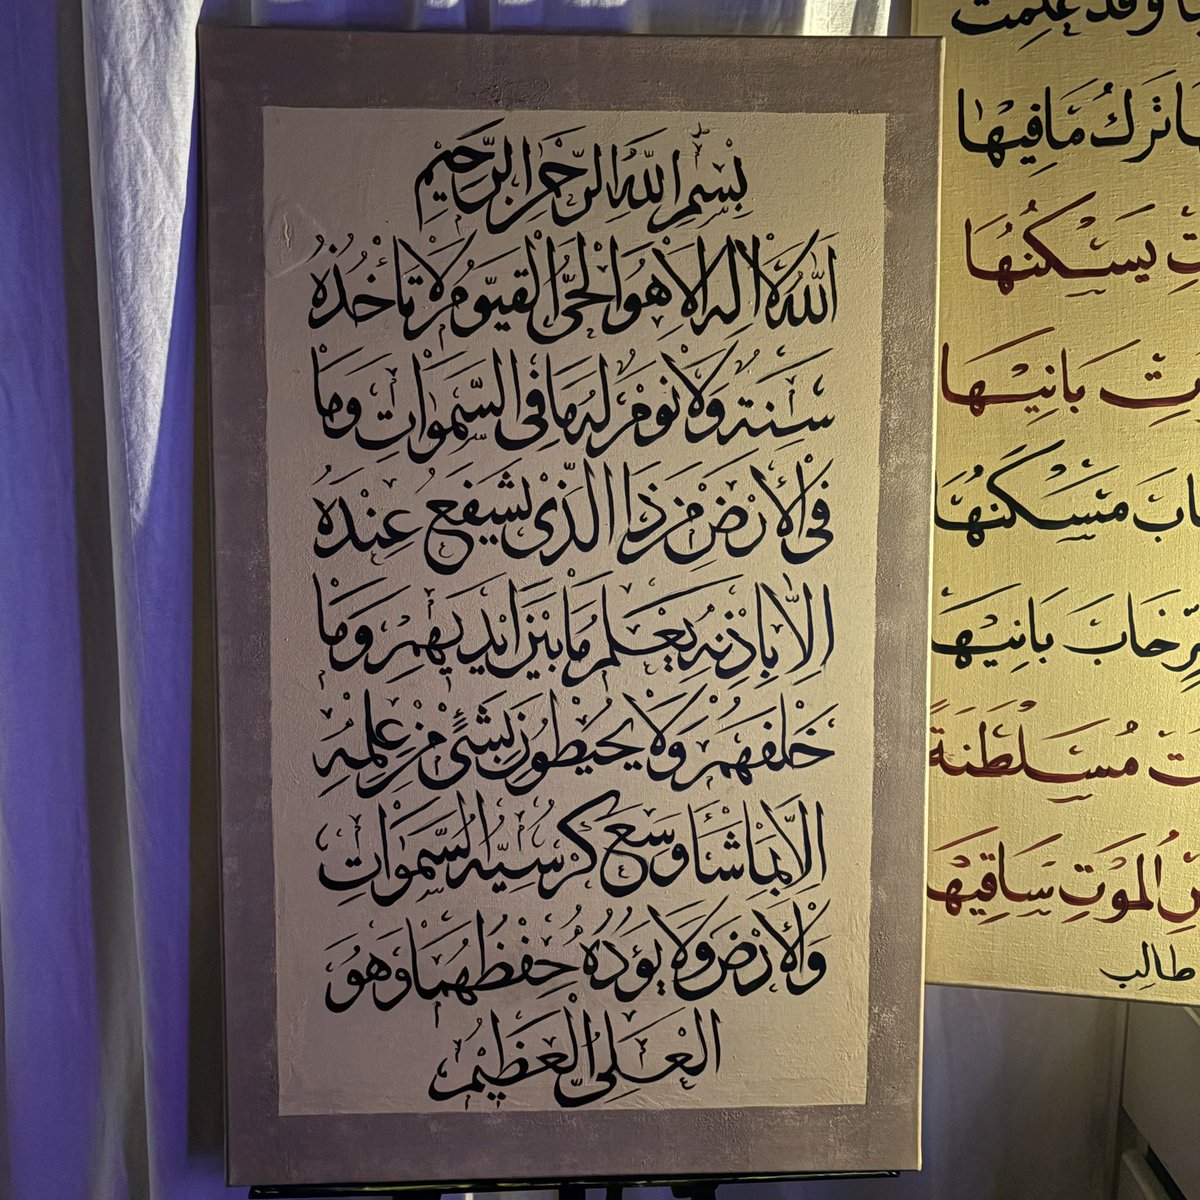 بِسْمِ اللّٰهِ الرَّحْمٰنِ الرَّحِيْمِ
اَللّٰهُ لَا اِلٰهَ اِلَّا هُوَ الْحَيُّ الْقَيُّوْمُ لَا تَأْخُذُهُ
سِنَةٌ وَلَا نَوْمٌ لَهُ مَا فِى السَّمٰوَاتِ وَمَا
فِى الْأَرْضِ مَنْ ذَا الَّذِى يَشْفَعُ عِنْدَهُ
اِلَّا بِاِذْنِهِ يَعْلَمُ مَا بَيْنَ اَيْدِيْهِمْ وَمَا
خَلْفَهُمْ وَلَا يُحِيْطُوْنَ بِشَىْءٍ مِنْ عِلْمِهِ
اِلَّا بِمَا شَاءَ وَسِعَ كُرْسِيُّهُ السَّمٰوَاتِ
وَالْأَرْضَ وَلَا يَؤُدُهُ حِفْظُهُمَا وَهُوَ
الْعَلِىُّ الْعَظِيْمُ
وقد علمت
ترك مَافِيهَا
يَسْكنُهَا
بَانِيْهَا
مَسْكنهَا
خَابَ بَانِيْهَا
مُسَلْطَنَةً
المَوْتِ سَاقِيْهَا
طالب